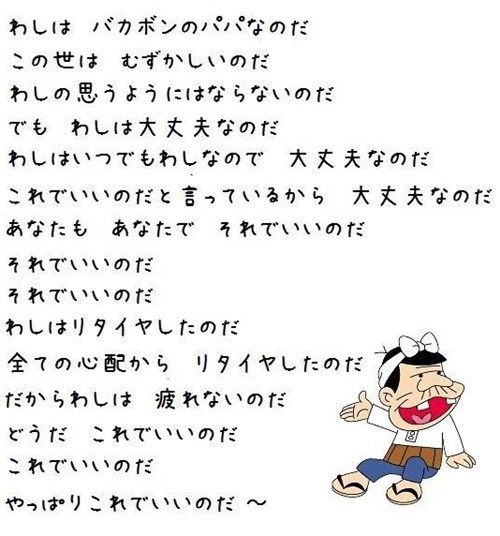 わしは　バカボンのパパなのだ
この世は　むずかしいのだ
わしの思うようにはならないのだ
でも　わしは大丈夫なのだ
わしはいつでもわしなので　大丈夫なのだ
これでいいのだと言っているから　大丈夫なのだ
あなたも　あなたで　それでいいのだ
それでいいのだ
それでいいのだ
わしはリタイヤしたのだ
全ての心配から　リタイヤしたのだ
だからわしは　疲れないのだ
どうだ　これでいいのだ
これでいいのだ
やっぱりこれでいいのだ～